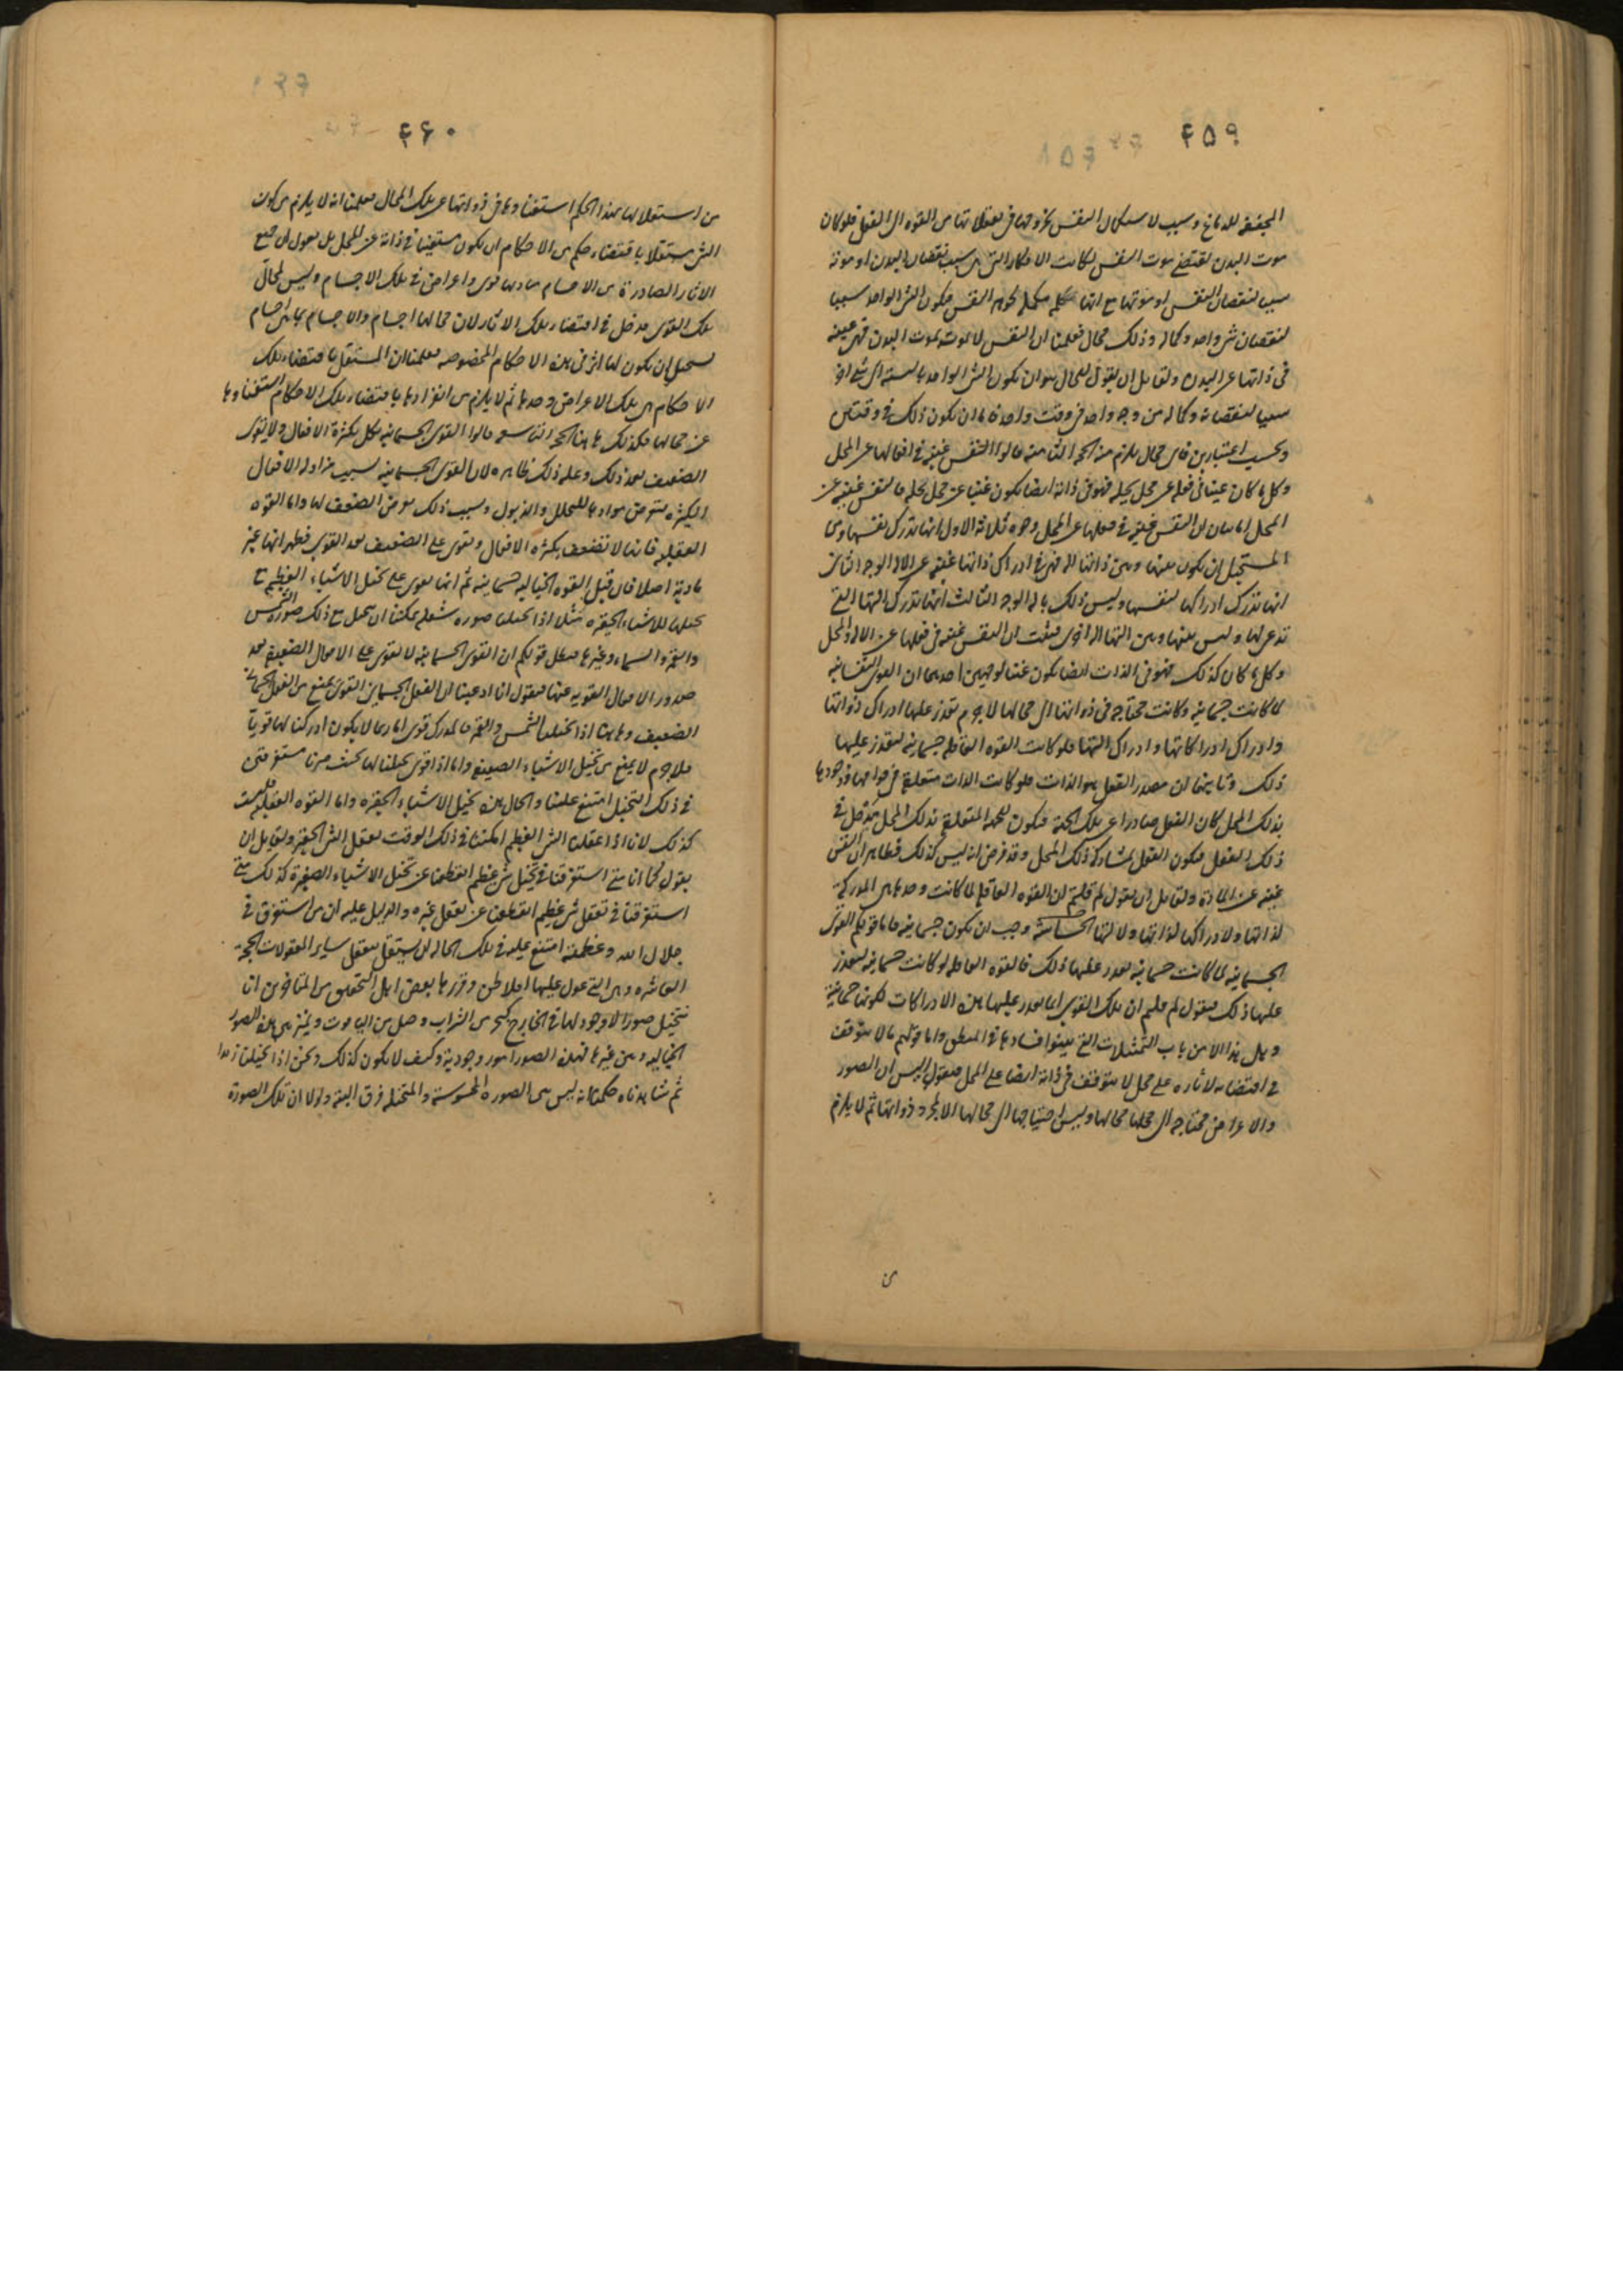 ۴۵۹
المجففة للدماغ وسبب لاستكمال النفس بخروجها فى تعقلاتها من القوه الى الفعل فلو كان
موت البدن يقتضى موت النفس لكانت الافكار التى هى سبب نقصان البدن او موته
سببا لنقصان النفس او موتها مع انها مكمله لجوهر النفس فيكون الشى الواحد سببا
لنقصان شى واحد وكماله وذلك محال فعلمنا ان النفس لا تموت بموت البدن فهى غنيه
فى ذاتها عن البدن ولقايل ان يقول المحال هو ان يكون الشى الواحد بالنسبة الى شى اخر
سببا لنقصانه وكماله من وجه واحد فى وقت واحد فاما ان يكون ذلك فى وقتين
وبحسب اعتبارين فاى محال يلزم منه الحجه الثامنه قالوا النفس غنيه فى افعالها عن المحل
وكل ما كان غنيا فى فعله عن محل يحله فهو فى ذاته ايضا يكون غنيا عن محل يحله فالنفس غنيه عن
المحل اما بيان ان النفس غنيه فى فعلها عن المحل وجوه ثلاثه الاول انها تدرك نفسها ومن
المستحيل ان يكون بينها وبين ذاتها اله فهى فى ادراك ذاتها غنيه عن الاله الوجه الثانى
انها تدرك ادراكها لنفسها وليس ذلك باله الوجه الثالث انها تدرك التها التى
تدعى لها وليس بينها وبين التها اله اخرى فثبت ان النفس غنيه فى فعلها عن الاله والمحل
وكل ما كان كذلك فهو فى الذات ايضا يكون غنيا لوجهين احدهما ان القوى النفسانيه
لما كانت جسمانيه وكانت محتاجه فى ذواتها الى محالها لا جرم تعذر عليها ادراك ذواتها
وادراك ادراكاتها وادراك التها فلو كانت القوه العاقله جسمانيه لتعذر عليها
ذلك وثانيهما ان مصدر الفعل هو الذات فلو كانت الذات متعلقة فى قوامها ووجودها
بذلك المحل كان الفعل صادرا عن تلك الجهة فيكون لجهة المتعلقه بذلك المحل مدخل فى
ذلك الفعل فيكون الفعل بمشاركة ذلك المحل وقد فرض انه ليس كذلك فظاهر ان النفس
غنيه عن المادة ولقايل ان يقول لم قلتم ان القوه العاقله لما كانت وحدها هى المدركة
لذاتها ولادراكها لذاتها ولالتها الحساسة وجب ان يكون جسمانيه فاما قولكم القوى
الجسمانيه لما كانت جسمانيه تعذر عليها ذلك فالقوه العاقله لو كانت جسمانيه لتعذر
عليها ذلك فيقول لم قلتم ان تلك القوى انما تعذر عليها هذه الادراكات لكونها جسمانية
وهل هذا الا من باب التمثيلات التى بينوا فسادها فى المنطق واما قولكم ما لا يتوقف
فى اقتضائه لاثاره على محل لا يتوقف فى ذاته ايضا على المحل فيقول اليس ان الصور
والاعراض محتاجه الى محلها محالها وليس احتياجها الى محالها الا لمجرد ذواتها ثم لا يلزم
من
۴۶۰
من استقلالها بهذا الحكم استغناوها فى ذواتها عن تلك المحال فعلمنا انه لا يلزم من كون
الشى مستقلا باقتضاء حكم من الاحكام ان يكون مستغنيا فى ذاته عن المحل بل نقول ان جميع
الاثار الصادرة من الاجسام مباديها قوى واعراض فى تلك الاجسام وليس لمحال
تلك القوى مدخل فى اقتضاء تلك الاثار لان محالها اجسام والاجسام بما هى اجسام
يستحيل ان يكون لها اثر فى هذه الاحكام المخصوصه فعلمنا ان المستقل باقتضاء تلك
الاحكام هى تلك الاعراض وحدها ثم لا يلزم من انفرادها باقتضاء تلك الاحكام استغناوها
عن محالها فكذلك هاهنا الحجه التاسعه قالوا القوى الجسمانيه تكل بكثرة الافعال ولا تقوى
الضعيف بعد ذلك وعله ذلك ظاهره لان القوى الجسمانيه بسبب مزاوله الافعال
الكثيره يتعرض موادها للتحلل والذبول وسبب ذلك يعرض الضعف لها واما القوه
العقليه فانها لا تضعف بكثره الافعال وتقوى على الضعيف بعد القوى فظهر انها غير
مادية اصلا فان قيل القوه الخياليه جسمانيه ثم انها تقوى على تخيل الاشياء العظيمه مع
تخيلها للاشياء الحقيره مثلا اذا تخيلنا صوره شعله يمكننا ان نتخيل مع ذلك صوره الشمس
والقمر والسماء وغيرها فبطل قولكم ان القوى الجسمانيه لا تقوى على الافعال الضعيفه بعد
صدور الافعال القويه عنها فيقول انا ادعينا ان الفعل الجسمانى القوى يمنع من الفعل الجسمانى
الضعيف وهاهنا اذا تخيلنا الشمس والقمر فالمدرك قوى اما ربما لا يكون ادراكنا لها قويا
فلا جرم لا يمنع من تخيل الاشياء الضعيفه واما اذا قوى تخيلنا لها بحيث صرنا مستغرقين
فى ذلك التخيل امتنع علينا والحال هذه تخيل الاشياء الحقيره واما القوه العقليه فليست
كذلك لانا اذا عقلنا الشى العظيم امكننا فى ذلك الوقت تعقل الشى الحقير ولقايل ان
يقول كما انا متى استغرقنا فى تخيل شى عظيم انقطعنا عن تخيل الاشياء الصغيرة كذلك متى
استغرقنا فى تعقل شى عظيم انقطعنا عن تعقل غيره والدليل عليه ان من استغرق فى
جلال الله وعظمته امتنع عليه فى تلك الحاله ان يستقل بتعقل ساير المعقولات الحجه
العاشره وهى التى عول عليها افلاطن وقررها بعض اهل التحقيق من المتاخرين انا
نتخيل صورا لا وجود لها فى الخارج كبحر من الشراب وجبل من الياقوت ونميز بين هذه الصور
الخياليه وبين غيرها فهذه الصور امور وجودية وكيف لا يكون كذلك ونحن اذا تخيلنا زيدا
ثم شاهدناه حكمنا انه ليس بين الصوره المحسوسة والمتخيله فرق البته ولولا ان تلك الصورة